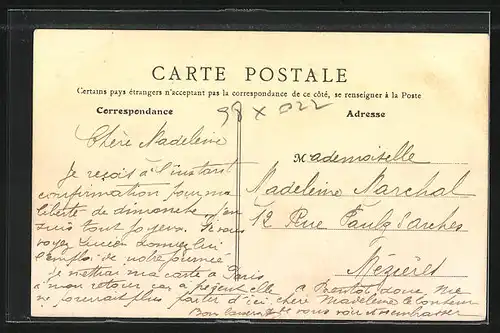 CARTE POSTALE
Certains pays étrangers n'acceptant pas la correspondance de ce côté, se renseigner à la Poste
Correspondance
Adresse
Chère Madeleine
Je reçois à l'instant
confirmation pour ma
liberté de dimanche, j'en
suis tout joyeux. Si vous
voyez Lucien donnez lui
l'emploi de notre journée
Je mettrai ma carte à Paris
à mon retour, car à présent elle
ne pourrait plus partir d'ici, chère Madeleine le bonheur
à Bientôt donc
vous voir et embrasser
Mademoiselle
Madeleine Marchal
12 Rue d'Arches
Mézières